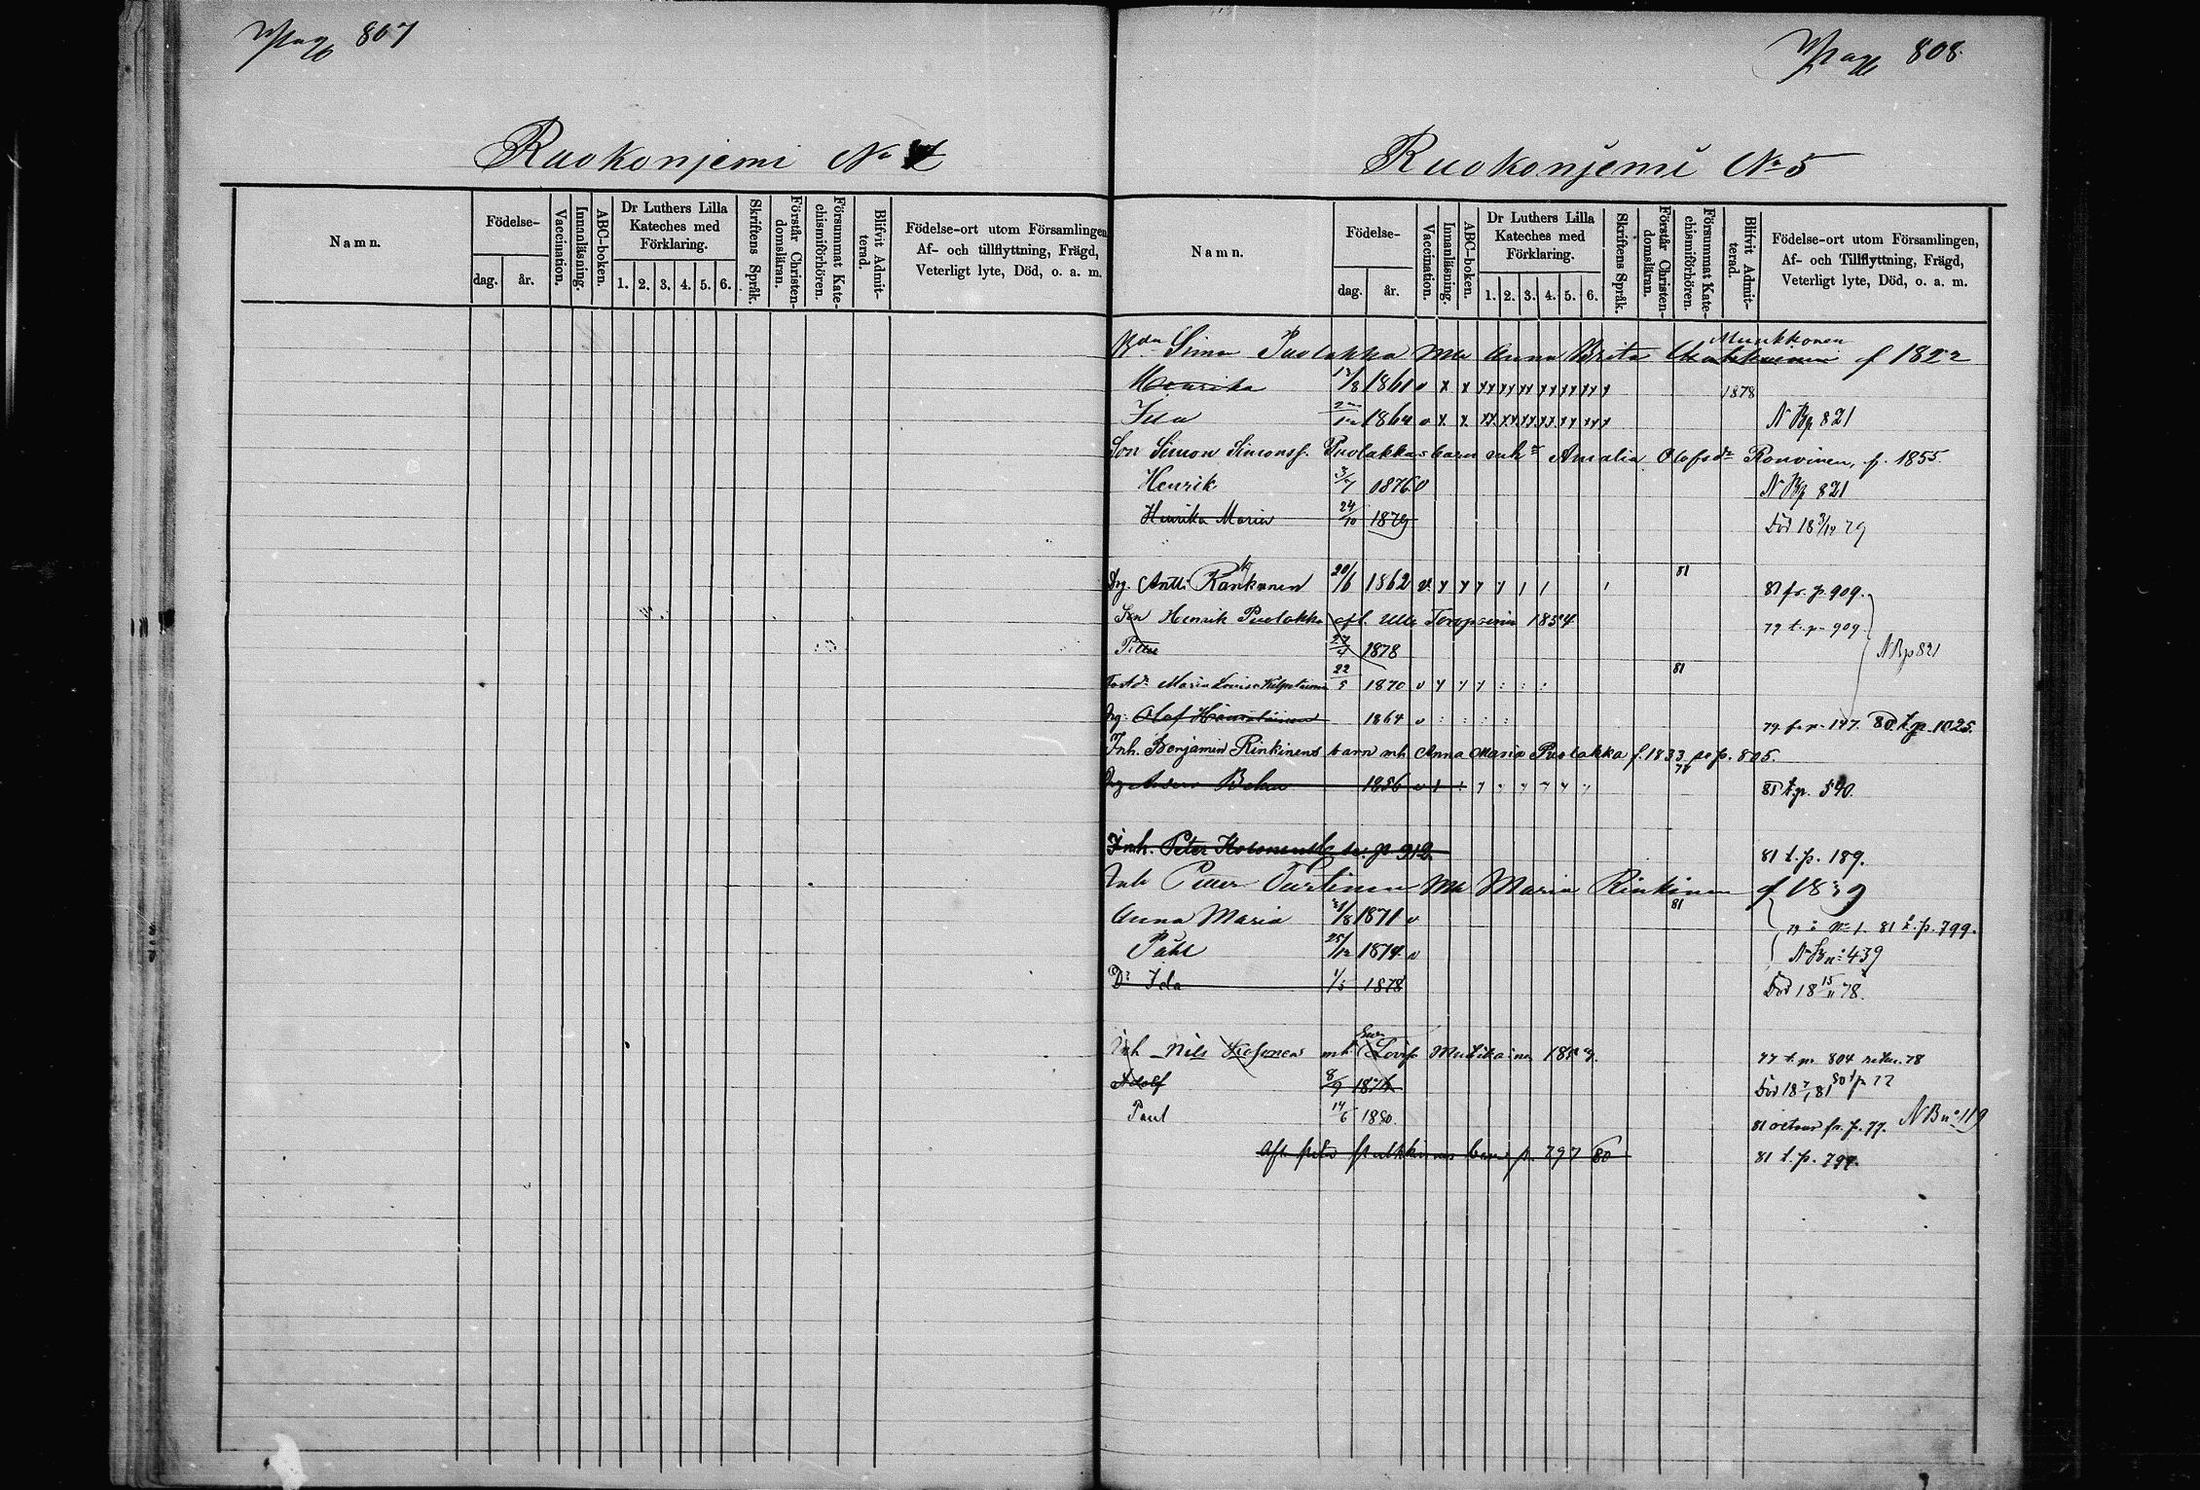 Pag 807
Ruokonjemi No 4
Namn.
Födelse-
dag.
år.
Vaccination.
Innanläsning.
ABC-boken.
Dr Luthers Lilla
Kateches med
Förklaring.
1. 2. 3. 4. 5. 6.
Skriftens Språk.
Förstår Christen-
domsläran.
Försummat Kate-
chismiförhören.
Blifvit Admit-
terad.
Födelse-ort utom Församlingen
Af- och tillflyttning, Frägd,
Veterligt lyte, Död, o. a. m.
Pag 808
Ruokonjemi No 5
Namn.
Födelse-
dag.
år.
Vaccination.
Innanläsning.
ABC-boken.
Dr Luthers Lilla
Kateches med
Förklaring.
1. 2. 3. 4. 5. 6.
Skriftens Språk.
Förstår Christen-
domsläran.
Försummat Kate-
chismiförhören.
Blifvit Admit-
terad.
Födelse-ort utom Församlingen,
Af- och Tillflyttning, Frägd,
Veterligt lyte, Död, o. a. m.
Munkkonen
Simon Puolakka Mh Anna Brita f 1822
Henrika 1861 v x x 1878
Ida 1864 v x x N Bp 821
Son Simon Simonss. Puolakkas barn mh Amalia Olofsdr Ronvinen, f. 1855.
Henrik 3/7 1876 v N Bp 821
Henrika Maria 24/10 1879 Död 18 9/12 79
Drg. Antti Rankonen 20/6 1862 v 81 81 fr. p. 909.
Son Henrik Puolakka afl. Ulla Toropainen 1854 79 t. p. 909.
Petter 27/4 1878 N Bp 821
Maria Lovisa 22/5 1870 v 81
Drg. Olaf 1864 v 79 fr. p. 147. 80 t. p. 1025.
Inh. Benjamin Rinkinens barn mh Anna Maria Puolakka f. 1833 se p. 805.
Drg 1856 v 81 t. p. 590.
Inh. Peter se p. 912. 81 t. p. 189.
Inh Petter Turtinen Mh Maria Rinkinen f 1839
Anna Maria 1871 v 81 81 t. p. 799.
Påhl 25/12 1874 v N B n: 439
Dr Ida 1/5 1878 Död 18 15/11 78.
Inh Nils mh Lovisa 77 t. p. 804 78
Adolf 8/9 Död 18 81
Paul 14/6 1880. 81 fr. p. 77. N B n: 119
p. 797 80 81 t. p. 799.